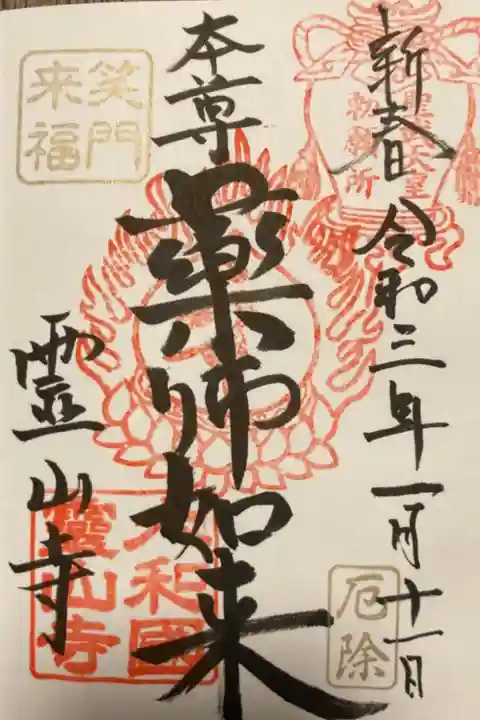 新春 令和三年一月十一日
聖武天皇
勅願所
本尊
薬師如来
霊山寺
笑門
来福
大和國
霊山寺
厄除